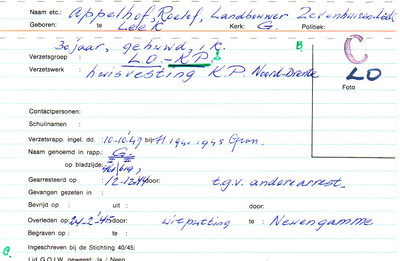 Naam etc.: Appelhof, Roelof, Landbouwer Zevenhuizen-Leek
Geboren: te Leek Kerk: G. Politiek:
30 jaar, gehuwd, 1 K. B.
Verzetsgroep : L.O. - K.P. C
Verzetswerk : huisvesting K.P. Noord-Drente LO
Foto
Contactpersonen:
Schuilnamen :
Verzetsrapp. ingel. dd. :10-10-47 bij: Gron.
Naam genoemd in rapp.: G.
op bladzijde:
Gearresteerd op :12-12-44 door: t.g.v. andere arrest.
Gevangen gezeten in :
Bevrijd op : uit : door:
Overleden op: 24-2-'45 door: uitputting te : Neuengamme
Begraven op : te :
C. Ingeschreven bij de Stichting 40/45:
Lid G.O.I.W. geweest: Ja / Neen